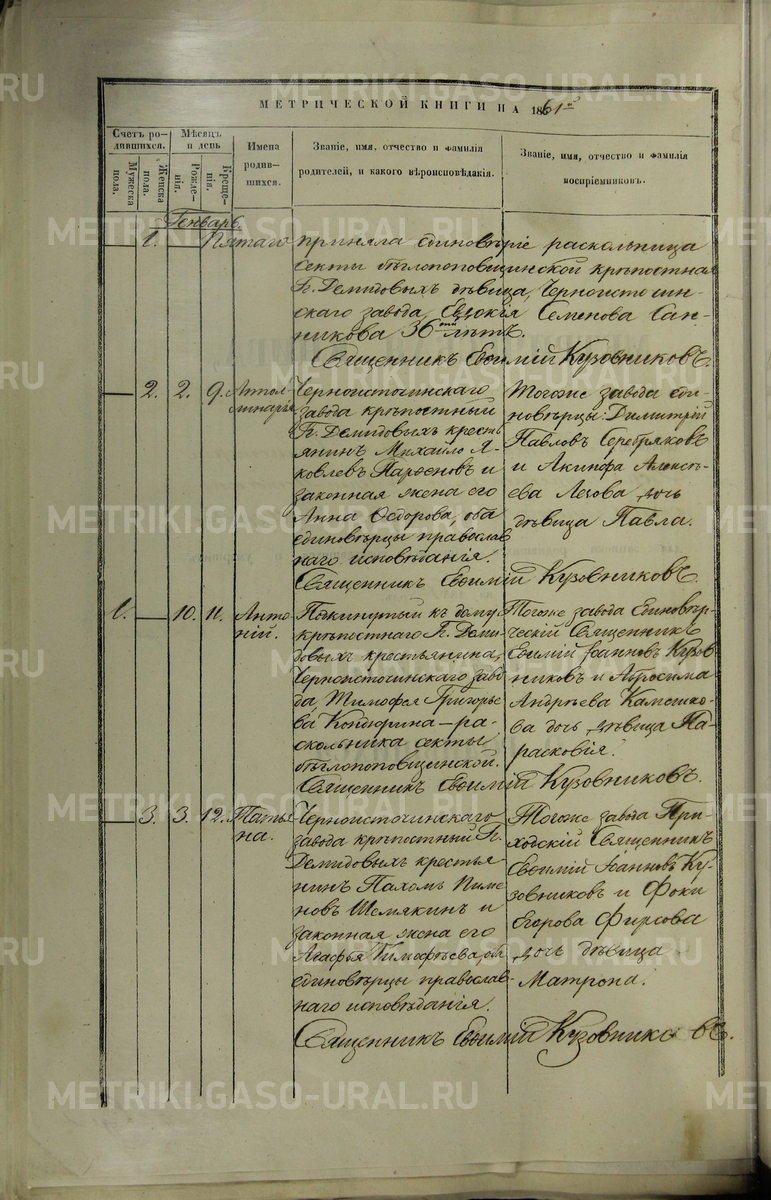 МЕТРИЧЕСКОЙ КНИГИ НА 1861й
Счетъ ро-
дившихся.
Мужеска
пола.
Женска
пола.
Мѣсяцъ
и день
Рожде-
нія.
Креще-
нія.
Имена
родив-
шихся.
Званіе, имя, отчество и фамилія
родителей, и какого вѣроисповѣданія.
Званіе, имя, отчество и фамилія
воспріемниковъ.
Генварь.
1. Пятаго приняла единовѣріе раскольница
секты бѣглопоповщинской крѣпостная
Г. Демидовыхъ дѣвица, Черноисточин-
скаго завода, Евдокія Семенова Сан-
никова 36ти лѣтъ.
Священникъ Евѳимій Кузовниковъ.
2. 2. 9.
Аполли-
нарія
Черноисточинскаго
завода крѣпостный
Г. Демидовыхъ кресть
янинъ Михайло Я-
ковлевъ Парѳеновъ и
законная жена его
Анна Ѳедорова, оба
единовѣрцы православ
наго исповѣданія.
Тогоже завода еди-
новѣрцы: Димитрій
Павловъ Серебряковъ
и Акинфа Алексѣ-
ева дочь
дѣвица Павла.
Священникъ Евѳимій Кузовниковъ.
1. 10. 11.
Анто-
ній.
Подкинутый къ дому
крѣпостнаго Г. Деми-
довыхъ крестьянина,
Черноисточинскаго заво-
да, Тимофея Григорье
ва Кондюрина – ра-
скольника секты
бѣглопоповщинской.
Тогоже завода Единовѣр-
ческій Священникъ
Евѳимій Іоанновъ Кузов
никовъ и Аѳросима
Андрѣева Камешко-
ва дочь, дѣвица Па-
расковія.
Священникъ Евѳимій Кузовниковъ.
3. 3. 12.
Татья
на.
Черноисточинскаго
завода крѣпостный Г.
Демидовыхъ крестья-
нинъ Пахомъ Пиме
новъ Шемякинъ и
законная жена его
Агафья Тимофѣева, оба
единовѣрцы православ-
наго исповѣданія.
Тогоже завода При-
ходскій Священникъ
Евѳимій Іоанновъ Ку-
зовниковъ и Фоки
Егорова Фирсова
дочь дѣвица
Матрона.
Священникъ Евѳимій Кузовниковъ.
METRIKI.GASO-URAL.RU